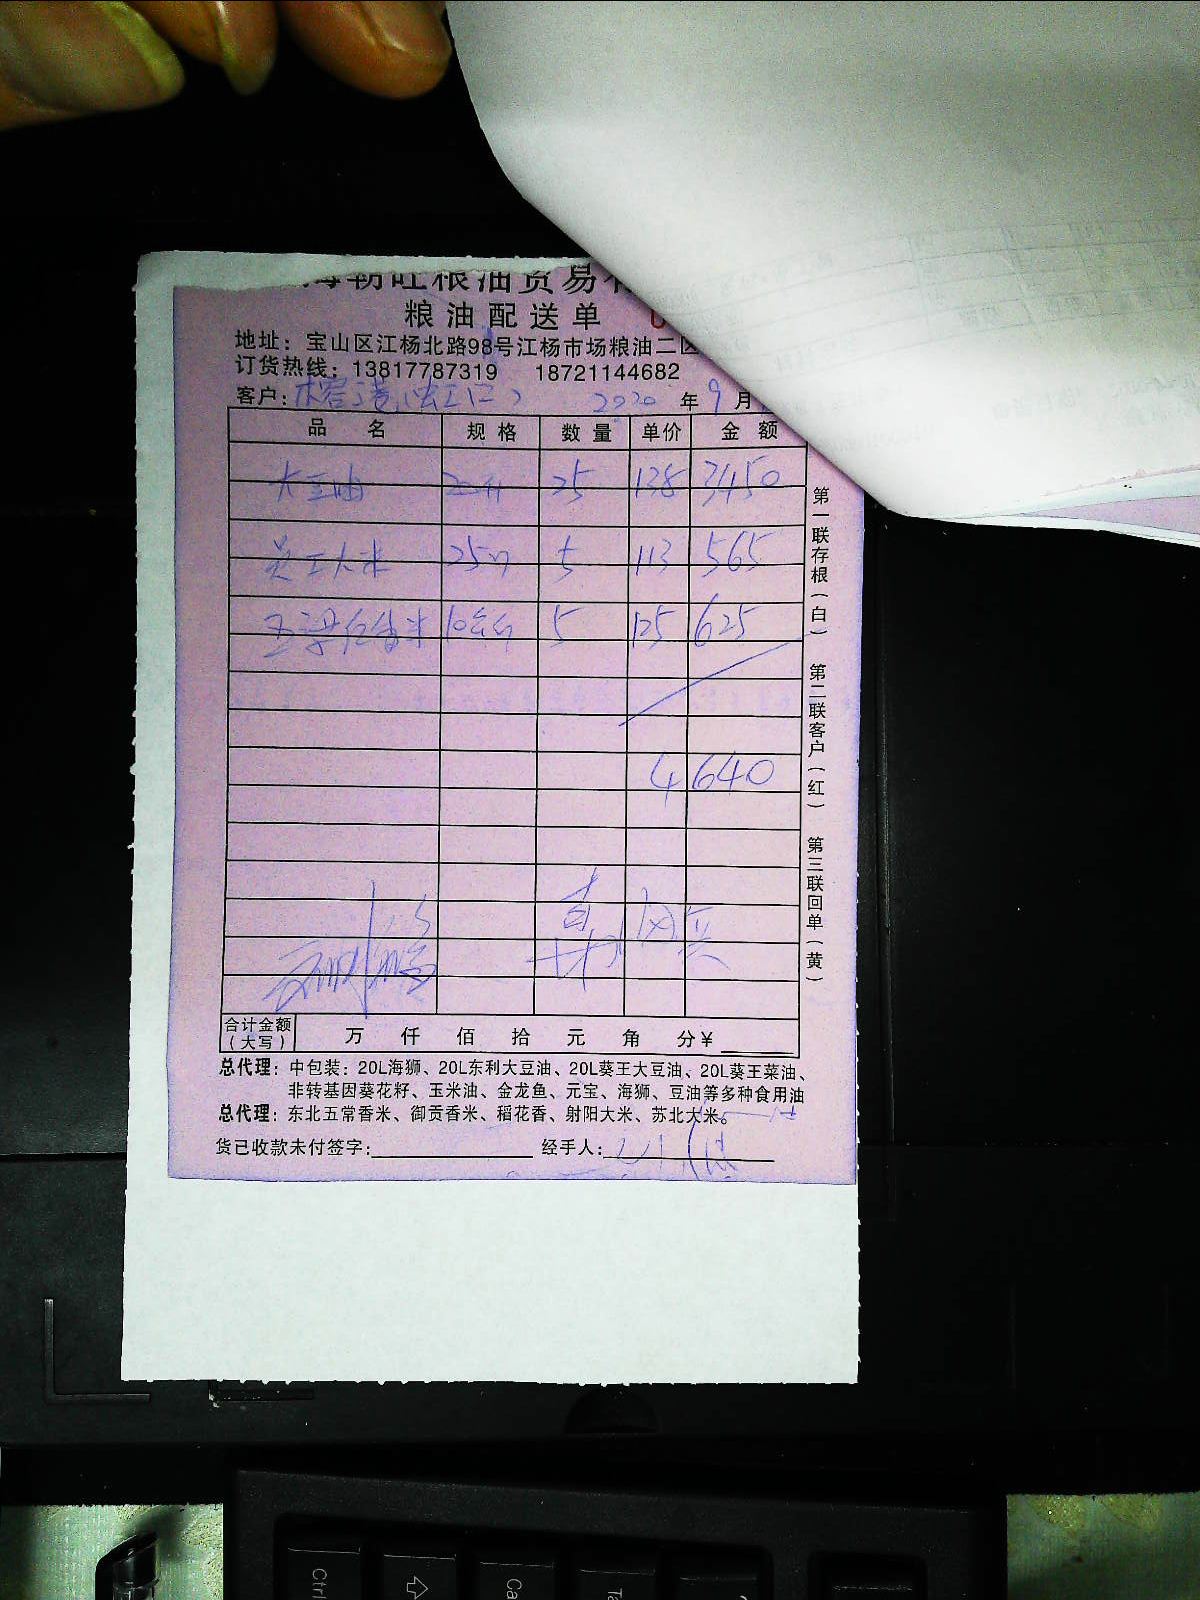 海朝旺粮油贸易有
粮油配送单
地址：宝山区江杨北路98号江杨市场粮油二区
订货热线：13817787319 18721144682
客户： 2020 年 9 月
品 名 规 格 数 量 单价 金 额
大豆油 20升 25 138 3450
大米 25 5 113 565
米 10公斤 5 125 625
4640
合计金额（大写） 万 仟 佰 拾 元 角 分¥
总代理：中包装：20L海狮、20L东利大豆油、20L葵王大豆油、20L葵王菜油、
非转基因葵花籽、玉米油、金龙鱼、元宝、海狮、豆油等多种食用油
总代理：东北五常香米、御贡香米、稻花香、射阳大米、苏北大米。
货已收款未付签字： 经手人：
第一联存根（白） 第二联客户（红） 第三联回单（黄）
Ctrl